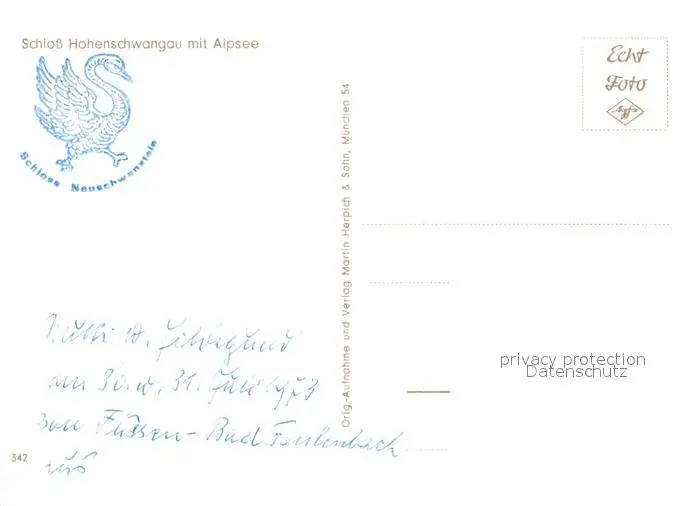 Schloß Hohenschwangau mit Alpsee
Schloss Neuschwanstein
Mutti
am 30. u. 31. Juli 1973
von Füssen - Bad Faulenbach
aus
342
Orig.-Aufnahme und Verlag Martin Herpich & Sohn, München 54
Echt
Foto
Agfa
privacy protection
Datenschutz